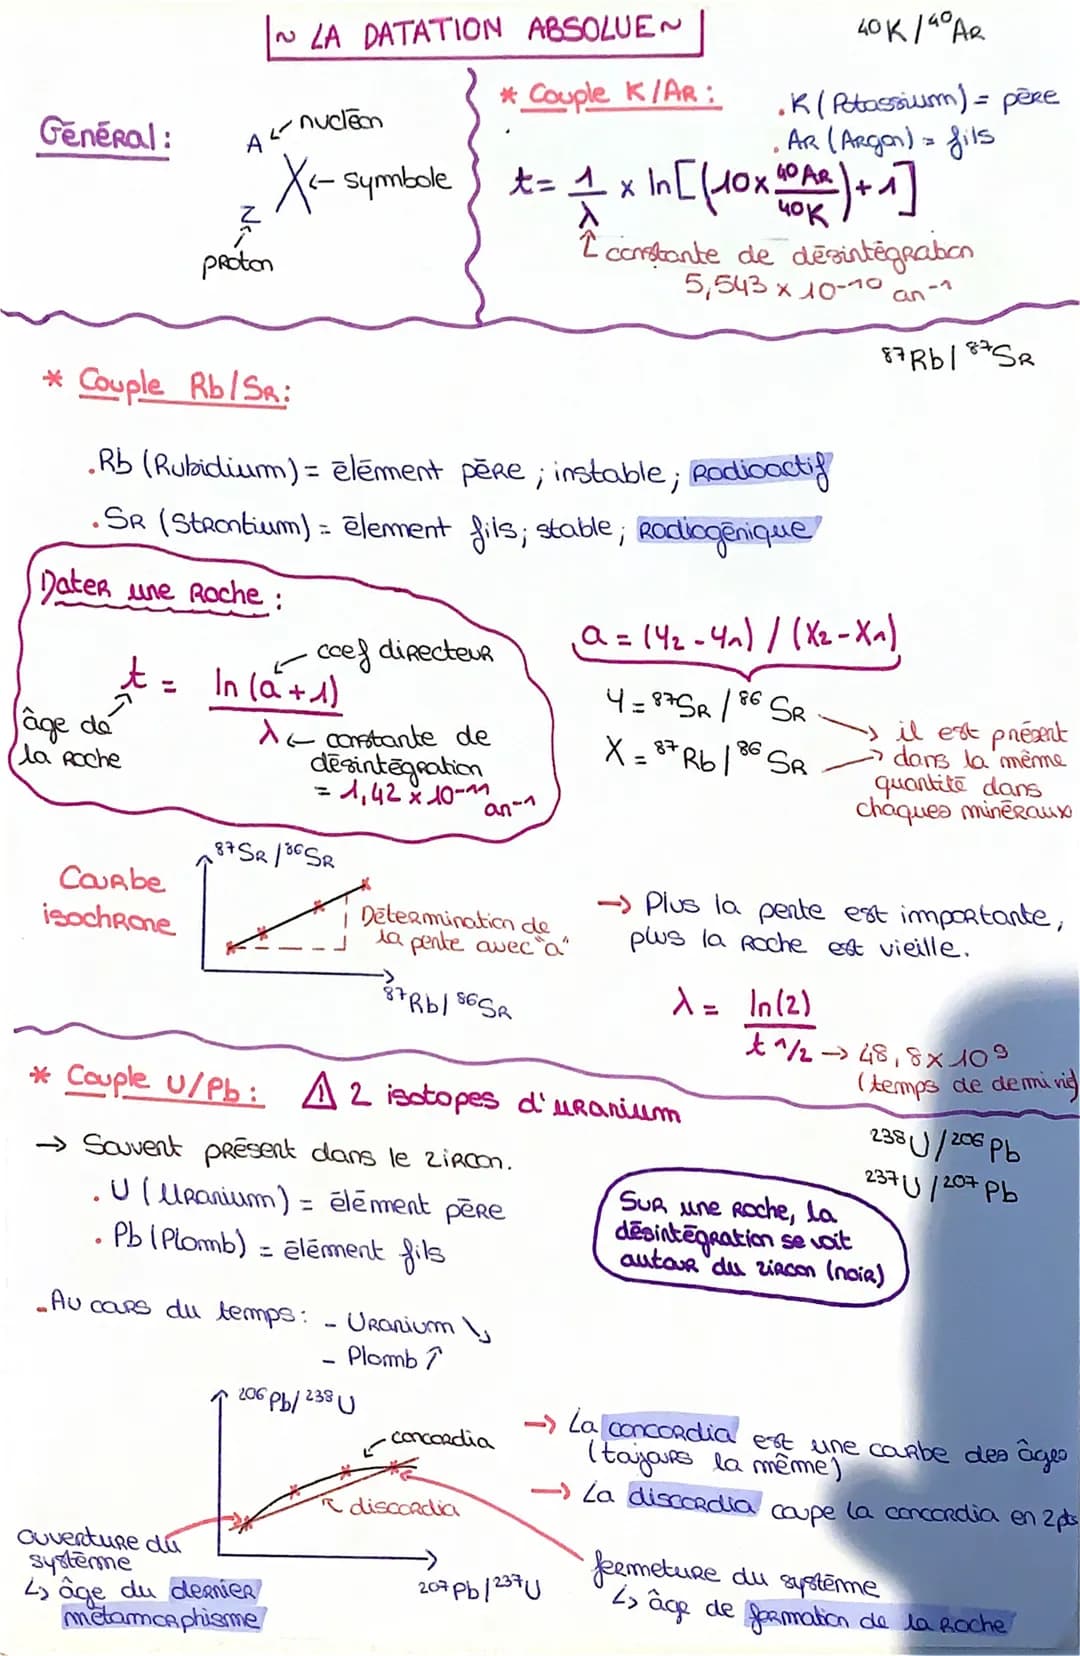 ~ LA DATATION ABSOLUE ~
40K / 40Ar
Général :
A ← nucléon
X ← symbole
Z
proton
* Couple K/Ar :
. K (Potassium) = père
. Ar (Argon) = fils
t = 1/λ x ln[(10x 40Ar/40K) + 1]
constante de désintégration
5,543 x 10-10 an-1
87Rb / 87Sr
* Couple Rb/Sr :
. Rb (Rubidium) = élément père ; instable ; Radioactif
. Sr (Strontium) = élement fils ; stable ; Radiogénique
Dater une Roche :
← coef directeur
t = ln (a + 1) / λ
âge de
la roche
← constante de
désintégration
= 1,42 x 10-11 an-1
a = (Y2 - Y1) / (X2 - X1)
Y = 87Sr / 86Sr
X = 87Rb / 86Sr
→ il est présent
→ dans la même
quantité dans
chaques minéraux
87Sr / 86Sr
Courbe
isochrone
Détermination de
la pente avec "a"
87Rb / 86Sr
→ Plus la pente est importante,
plus la roche est vieille.
λ = ln(2) / t 1/2 → 48,8 x 10 9
(temps de demi vie)
* Couple U/Pb : ⚠ 2 isotopes d'uranium
238U / 206Pb
237U / 207Pb
→ Souvent présent dans le zircon.
. U (Uranium) = élément père
. Pb (Plomb) = élément fils
Sur une roche, la
désintégration se voit
autour du zircon (noir)
- Au cours du temps : - Uranium ↘
- Plomb ↑
206Pb / 238U
concordia
discordia
207Pb / 237U
ouverture du
système
↳ âge du dernier
métamorphisme
→ La concordia est une courbe des âges
(toujours la même)
→ La discordia coupe la concordia en 2 pts
fermeture du système
↳ âge de formation de la Roche